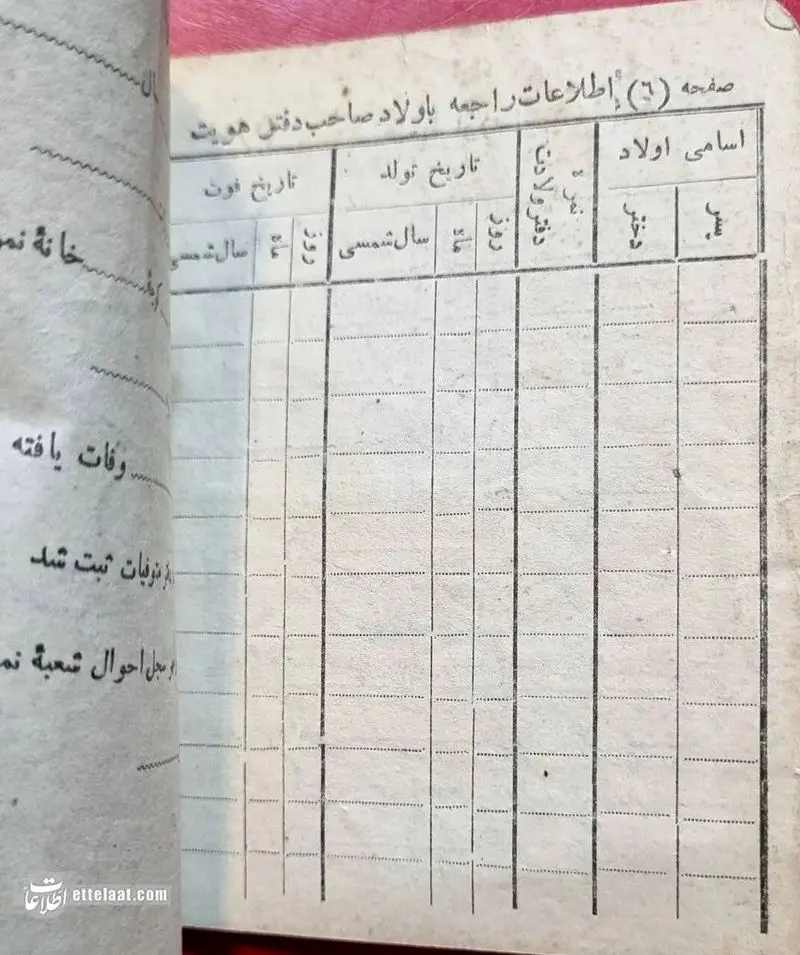 صفحه (٦) اطلاعات راجعه باولاد صاحب دفتر هویت
اسامی اولاد
پسر
دختر
نمرهٔ دفتر ولادت
تاریخ تولد
روز
ماه
سال شمسی
تاریخ فوت
روز
ماه
سال شمسی
خانهٔ
وفات یافته
ثبت شد
سجل احوال شعبهٔ
اطلاعات ettelaat.com